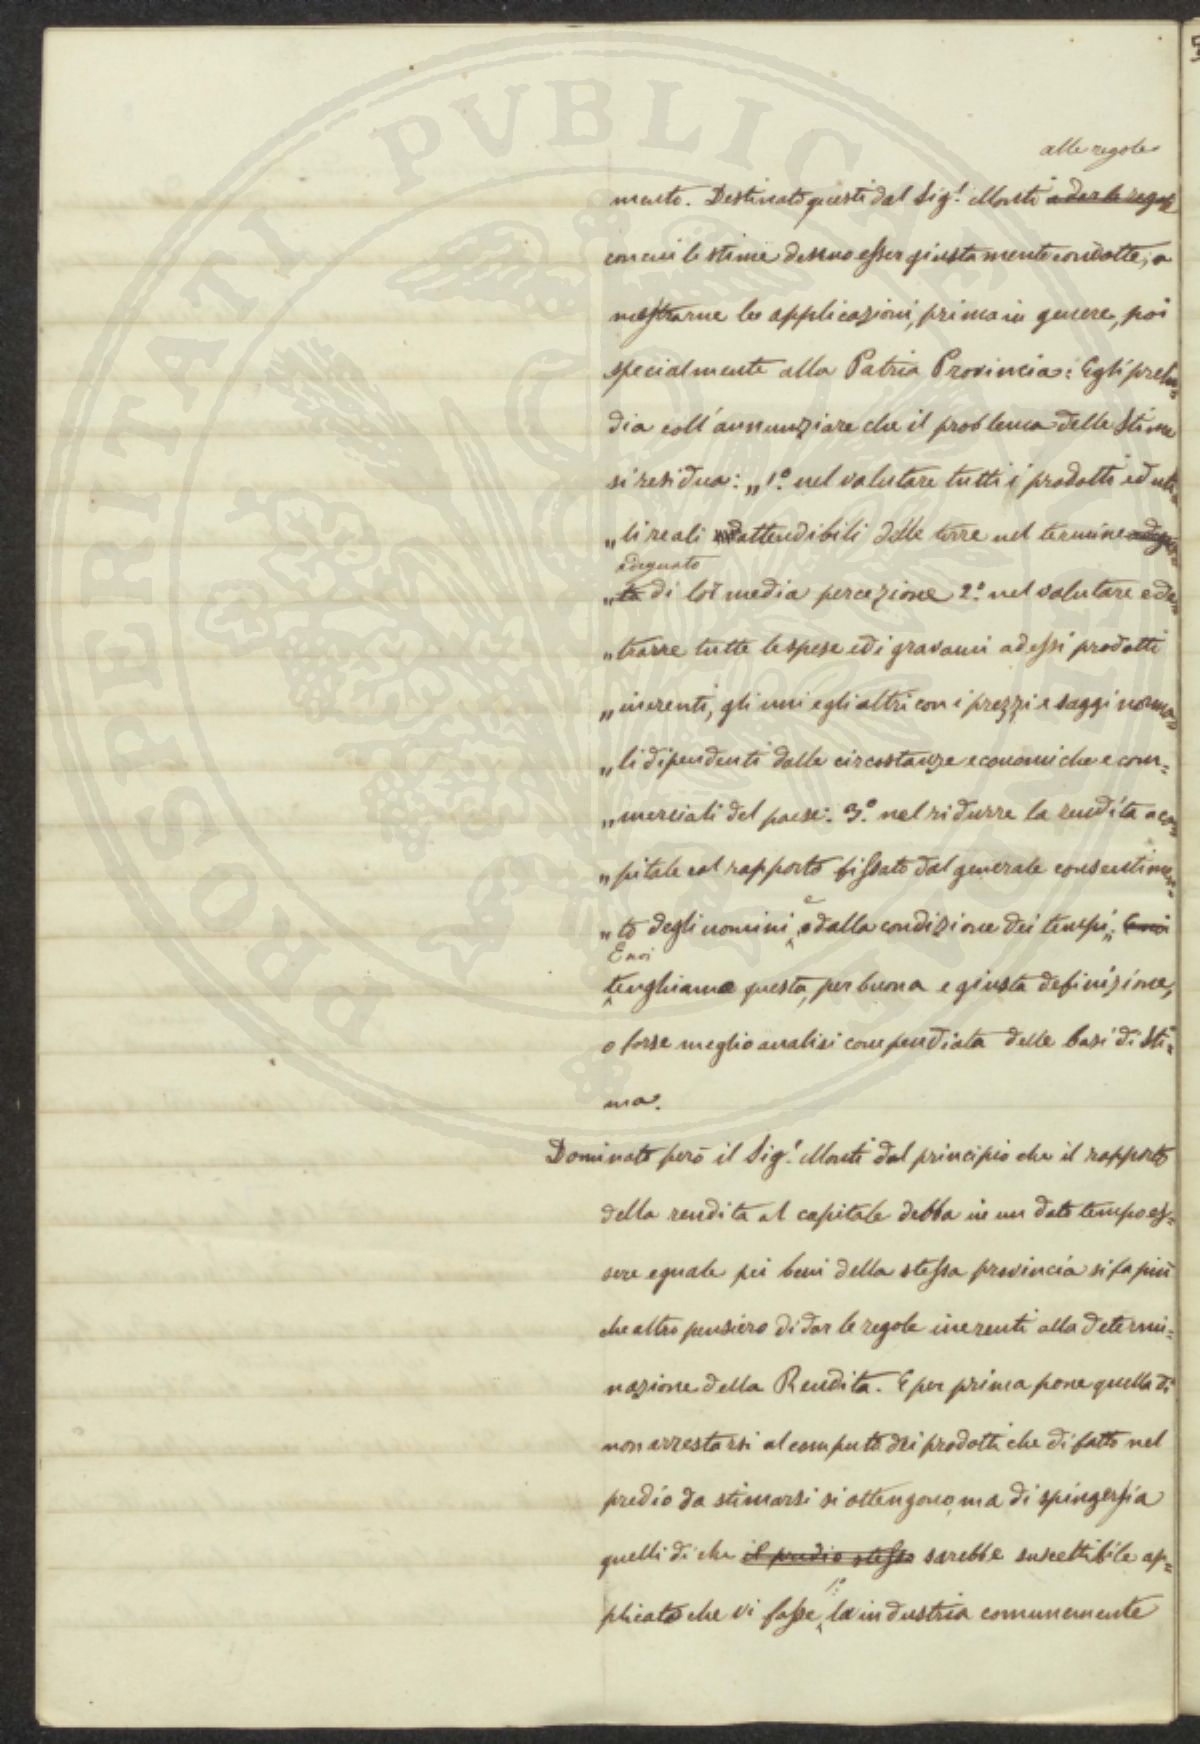 PROSPERITATI PVBLICAE
alle regole
mento. Destinato questi dal Sig.r Monti a dar le regole
con cui le stime denno esser giustamente condotte, a
mostrarne le applicazioni, prima in genere, poi
specialmente alla Patria Provincia: Egli prelu=
dia coll'annunziare che il problema delle Stime
si residua: „1.o nel valutare tutti i prodotti ed uti=
„li reali attendibili delle terre nel termine adegua=
adeguato
„to di lor media percezione 2.o nel valutare e de=
„trarre tutte le spese ed i gravami ad essi prodotti
„inerenti, gli uni e gli altri con i prezzi e saggi norma=
„li dipendenti dalle circostanze economiche e com=
„merciali del paese: 3.o nel ridurre la rendita a ca=
„pitale col rapporto fissato dal generale consentimen=
„to degli uomini, e dalla condizione dei tempi„ E noi
E noi
tenghiamo questa, per buona e giusta definizione,
o forse meglio analisi compendiata delle basi di Sti=
ma.
Dominato però il Sig.r Monti dal principio che il rapporto
della rendita al capitale debba in un dato tempo es=
sere eguale pei beni della stessa provincia si fa più
che altro pensiero di dar le regole inerenti alla determi=
nazione della Rendita. E per prima pone quella di
non arrestarsi al computo dei prodotti che di fatto nel
predio da stimarsi si ottengono, ma di spingersi a
quelli di che il predio stesso sarebbe suscettibile ap=
plicato che vi fosse la industria comunemente